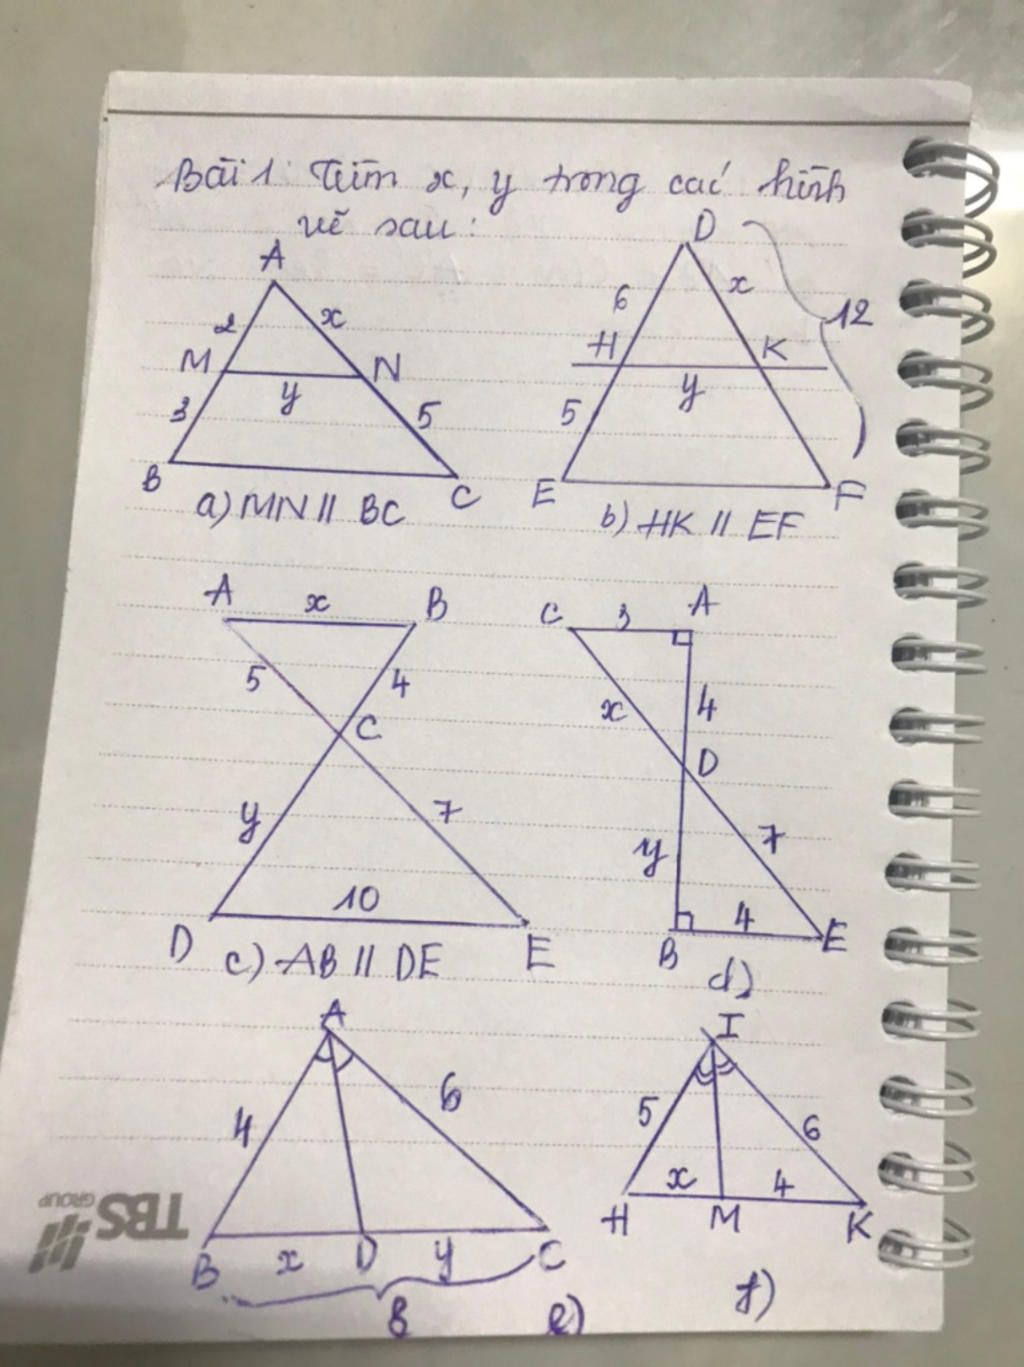 Bài 1: Tìm x, y trong các hình
vẽ sau:
A
2
x
M
N
y
3
5
B
C
a) MN // BC
D
6
x
12
H
K
y
5
E
F
b) HK // EF
A
x
B
5
4
C
y
7
10
D
E
c) AB // DE
C
3
A
x
4
D
y
7
4
B
E
d)
A
4
6
B
x
D
y
C
8
e)
I
5
6
x
4
H
M
K
f)
TBS
GROUP